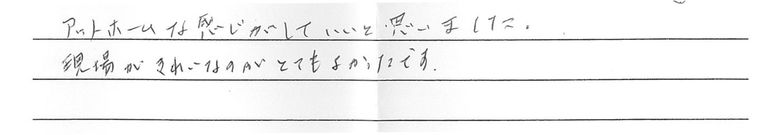 アットホームな感じがしていいと思いました。
現場がきれいなのがとてもよかったです。